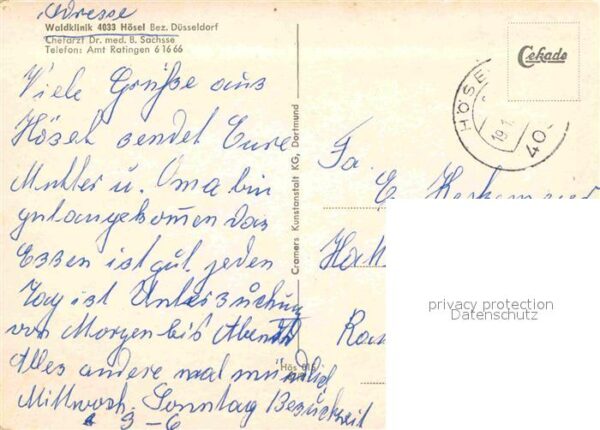 Adresse
Waldklinik 4033 Hösel Bez. Düsseldorf
Chefarzt Dr. med. B. Sachsse
Telefon: Amt Ratingen 6 16 66
Viele Grüße aus
Hösel sendet Eure
Mutter u. Oma bin
gutangekommen das
Essen ist gut, jeden
Tag ist Untersuchung
von Morgen bis Abend
Alles andere mal mündlich,
Mittwoch. Sonntag Besuchzeit
3-6
Cramers Kunstanstalt KG, Dortmund
Hös 816
Cekade
HÖSEL
19.1
40
Fa.
E.
privacy protection
Datenschutz